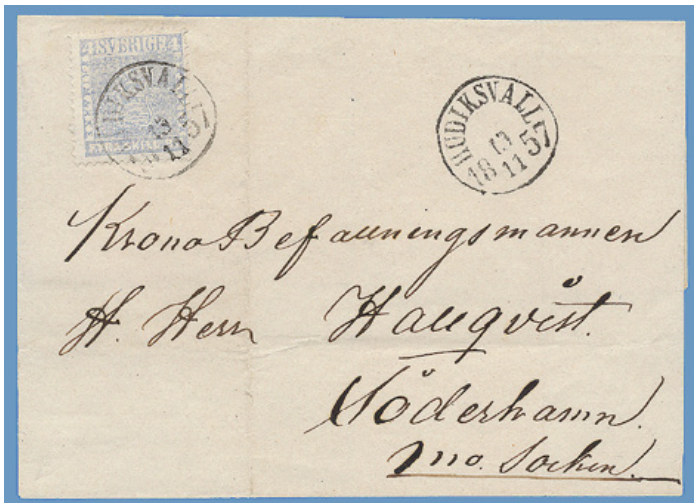 SVERIGE
HUDIKSVALL
13
11
18 57
FYRA SKILL
HUDIKSVALL
13
18 11 57
Krono Befallningsmannen
H. Herr Hallqvist.
Söderhamn.
Mo. Socken.